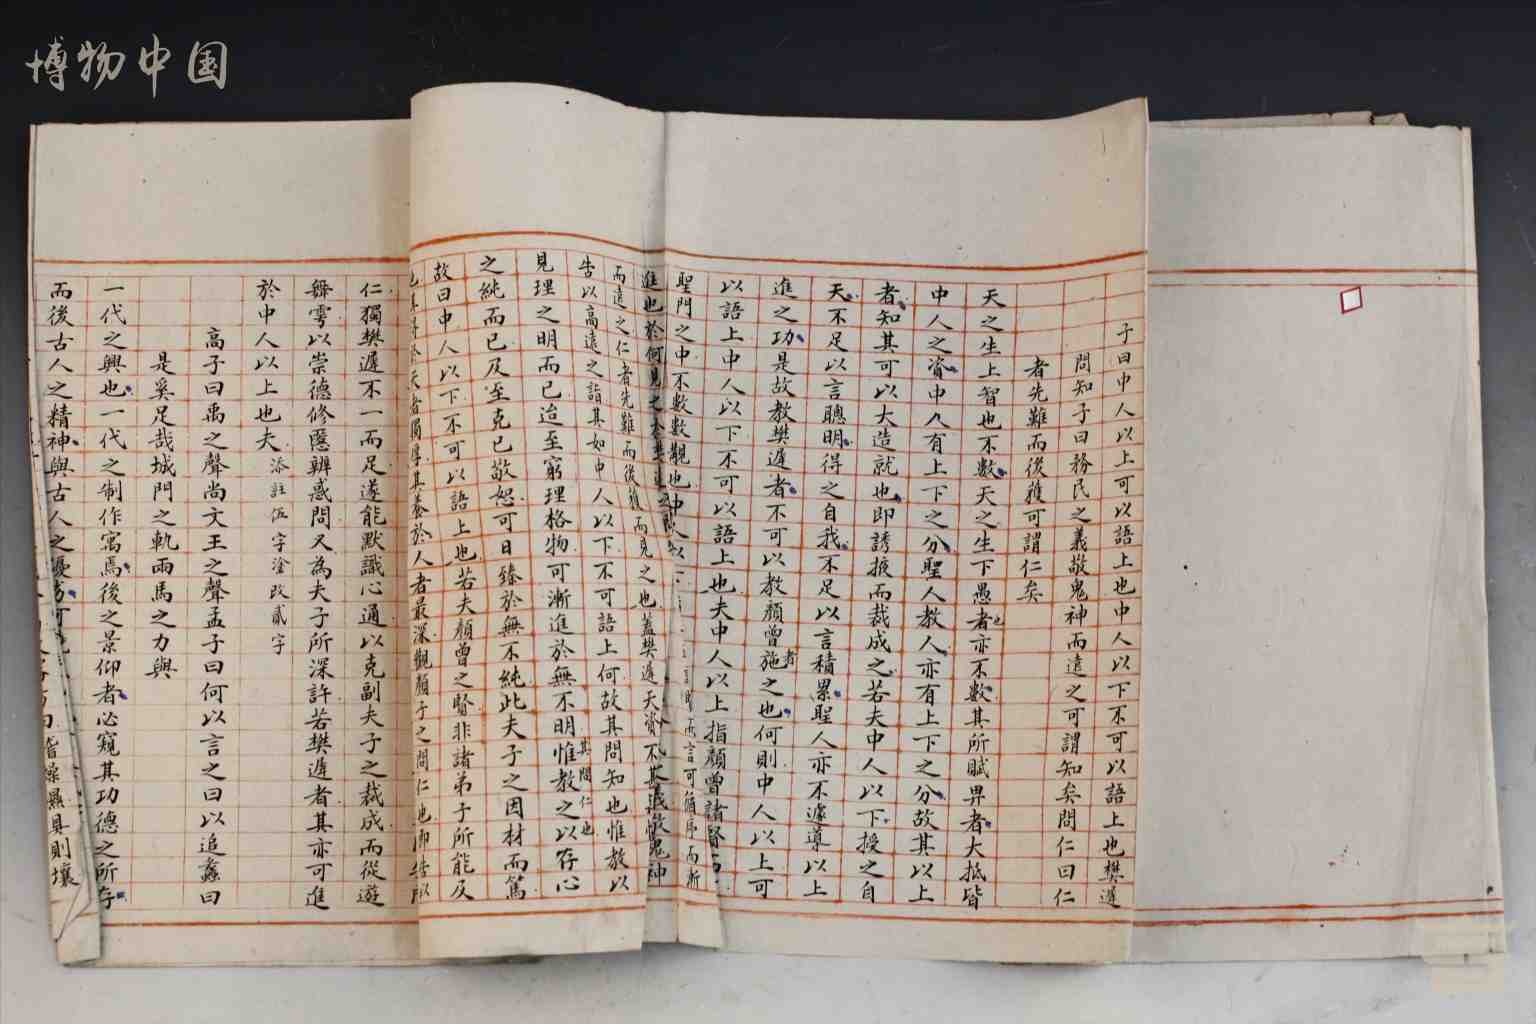 博物中国
子曰中人以上可以語上也中人以下不可以語上也樊遲
問知子曰務民之義敬鬼神而遠之可謂知矣問仁曰仁
者先難而後獲可謂仁矣
天之生上智也不數天之生下愚者亦不數其所賦畀者大抵皆
中人之資中人有上下之分聖人教人亦有上下之分故其以上
者知其可以大造就也即誘掖而裁成之若夫中人以下授之自
天不足以言聰明得之自我不足以言積累聖人亦不遽導以上
進之功是故教樊遲者不可以教顏曾者施之也何則中人以上可
以語上中人以下不可以語上也夫中人以上指顏曾諸賢
聖門之中不數數覯也中人以 言可循序而漸
進也於何見之
而遠之仁者先難而後獲而見之也蓋樊遲天資不
告以高遠之詣其如中人以下不可語上何故其問知也惟教以
敬鬼神
其問仁也
見理之明而已迨至窮理格物可漸進於無不明惟教之以存心
之純而已及至克己敬恕可日臻於無不純此夫子之因材而篤
故曰中人以下不可以語上也若夫顏曾之賢非諸弟子所能及
者獨厚其養於人者最深觀顏子之問仁也即告以
仁獨樊遲不一而足遂能默識心通以克副夫子之裁成而從遊
舞雩以崇德修慝辨惑問又為夫子所深許若樊遲者其亦可進
於中人以上也夫 添註伍字塗改貳字
高子曰禹之聲尚文王之聲孟子曰何以言之曰以追蠡曰
是奚足哉城門之軌兩馬之力與
一代之興也一代之制作寓焉後之景仰者必窺其功德之所存
而後古人之精神與古人之 則壞